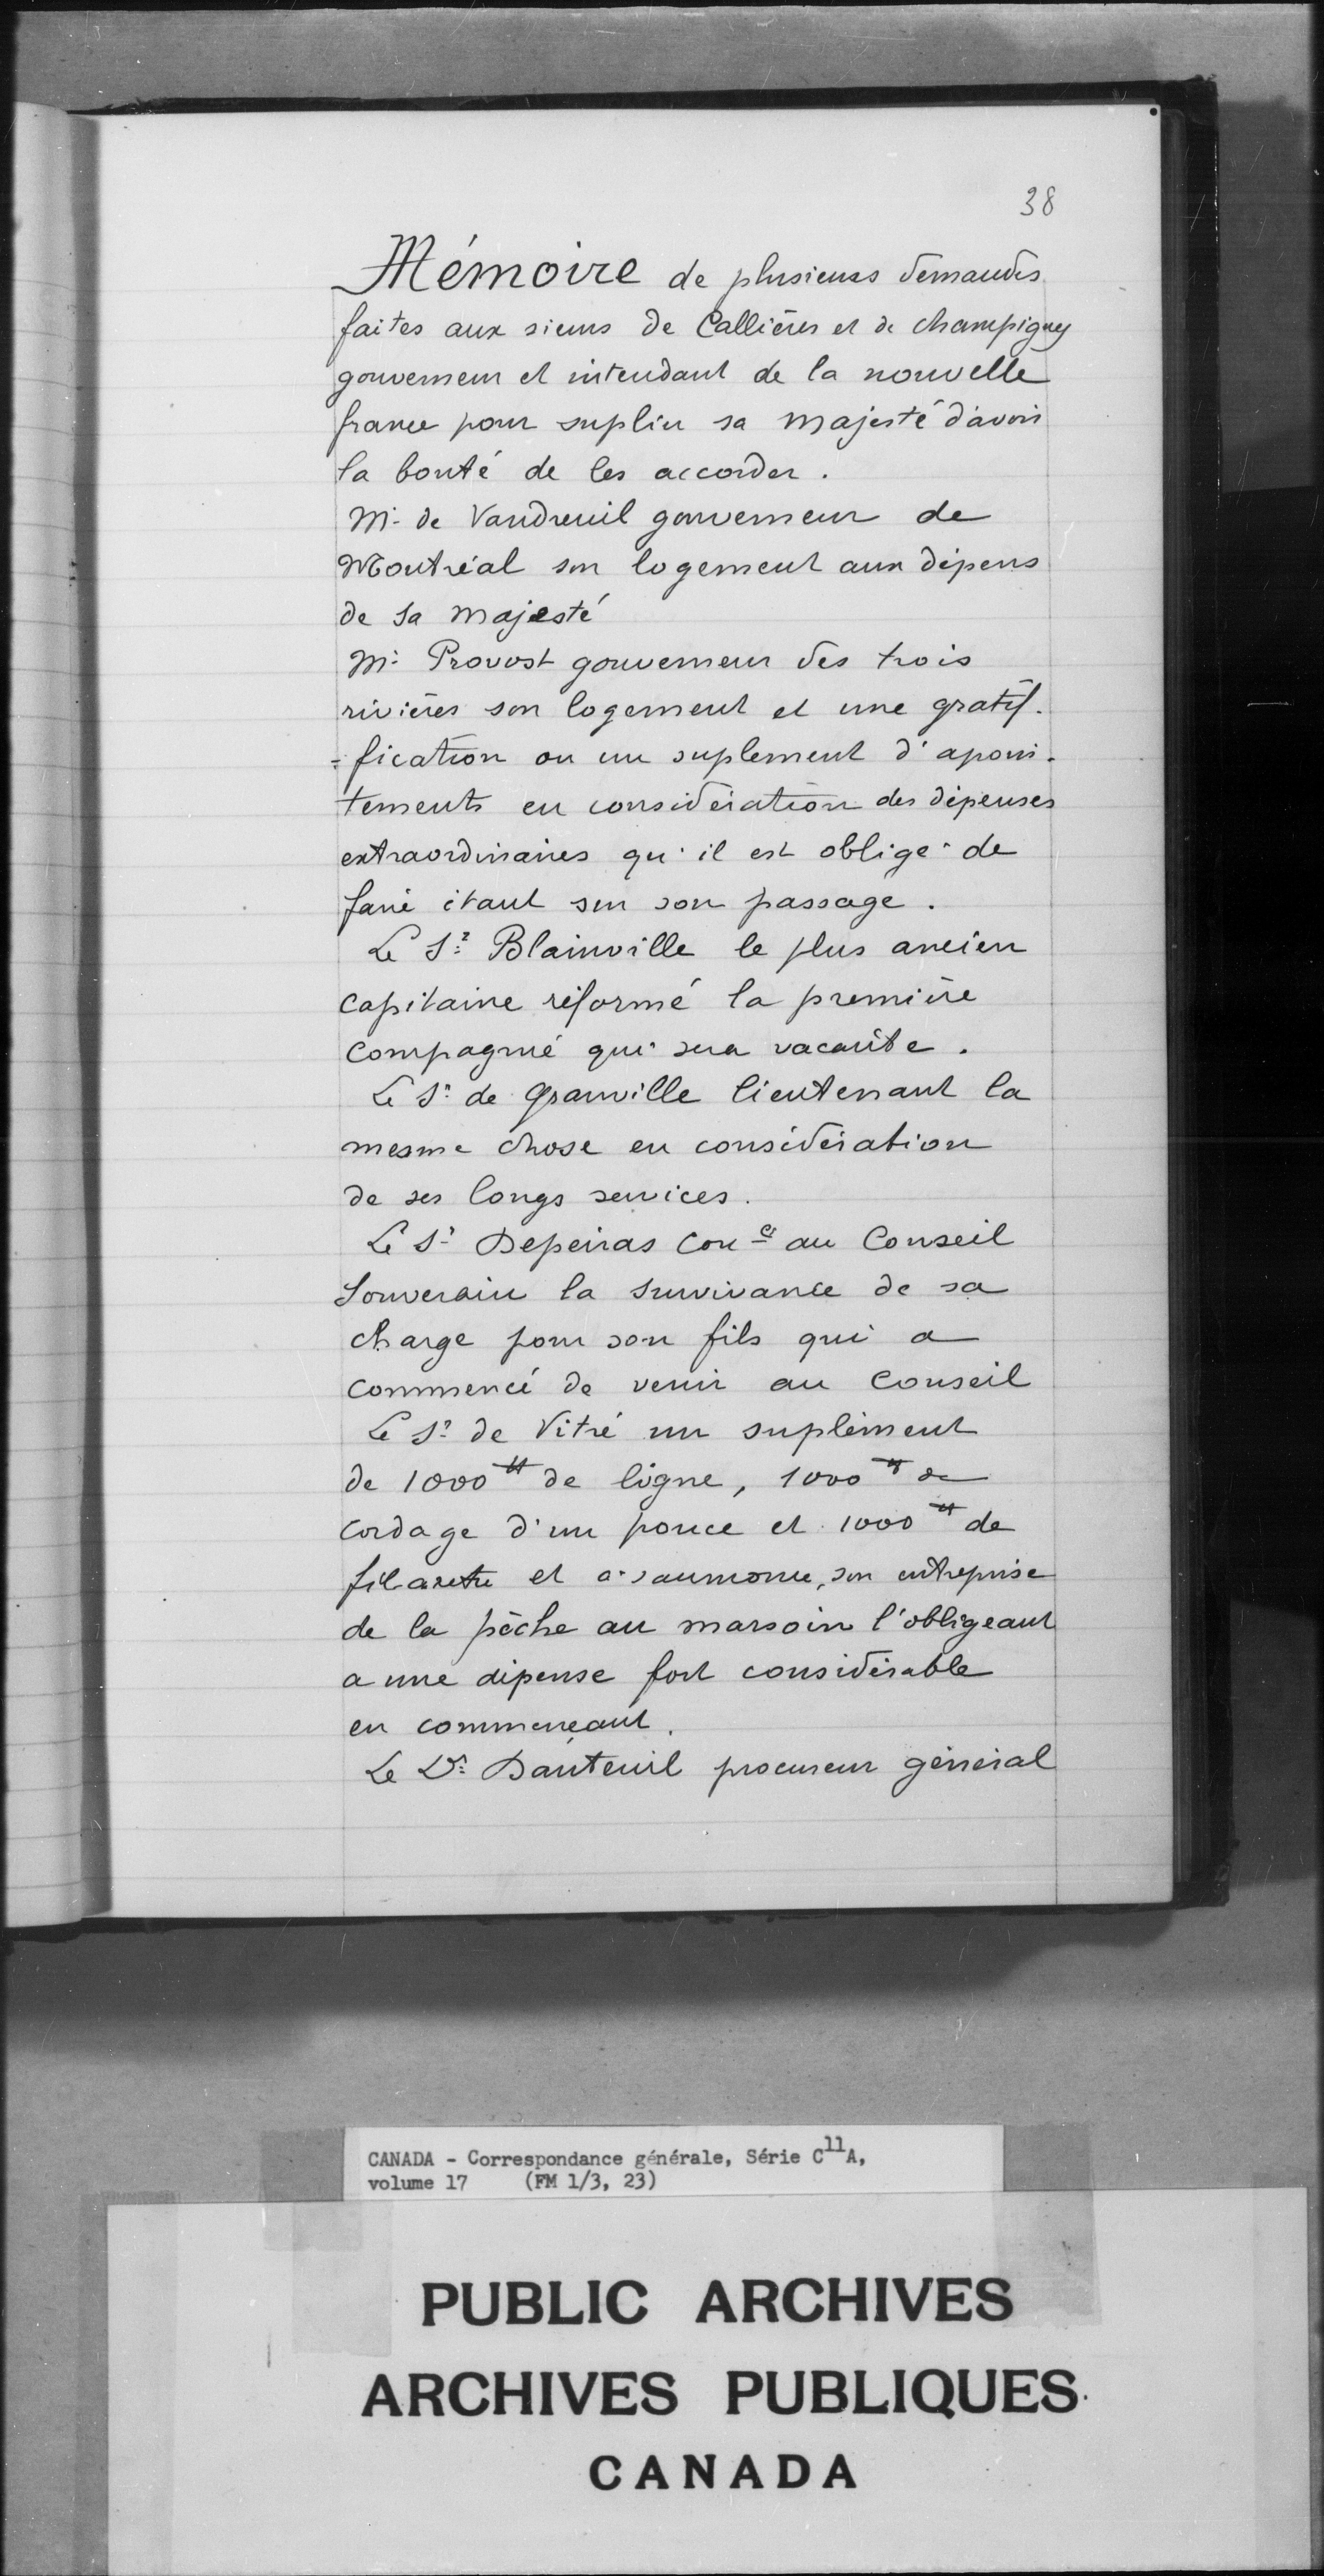 38
Mémoire de plusieurs demandes
faites aux sieurs de Callières et de champigny
gouverneur et intendant de la nouvelle
france pour suplier sa majesté d'avoir
la bonté de les accorder.
Mr. de Vaudreuil gouverneur de
Montréal son logement aux dépens
de sa majesté
Mr. Provost gouverneur des trois
rivières son logement et une gratif-
=fication ou un suplement d'apoin-
tements en considération des dépenses
extraordinaires qu'il est obligé de
faire étant sur son passage.
Le Sr. Blainville le plus ancien
capitaine réformé la première
compagnie qui sera vacante.
Le Sr. de Granville lieutenant la
mesme chose en considération
de ses longs services.
Le Sr. Depeiras Con.er au Conseil
Souverain la survivance de sa
charge pour son fils qui a
commencé de venir au Conseil
Le Sr. de Vitré un suplément
de 1000 ₶ de ligne, 1000 ₶ de
cordage d'un pouce et 1000 ₶ de
fil et a saumonne, son entreprise
de la pêche au marsoin l'obligeant
a une dépense fort considérable
en commençant.
Le Sr. Dauteuil procureur général
CANADA - Correspondance générale, Série C11A,
volume 17 (FM 1/3, 23)
PUBLIC ARCHIVES
ARCHIVES PUBLIQUES
CANADA